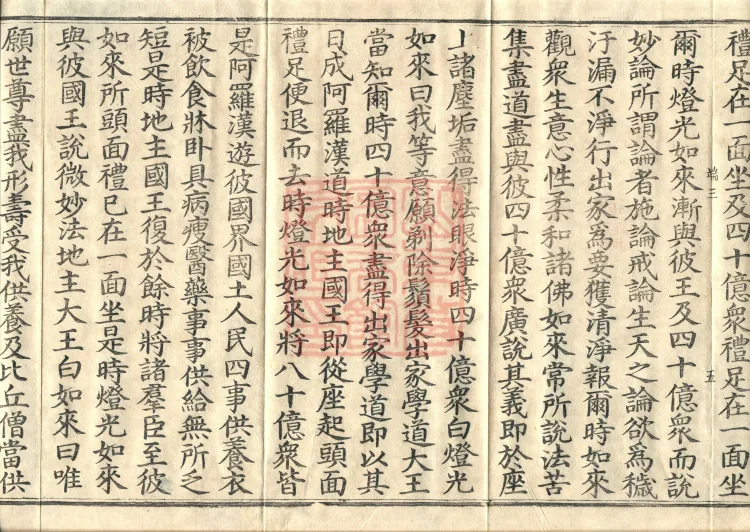 禮足在一面坐及四十億衆禮足在一面坐
端三
五
爾時燈光如來漸與彼王及四十億衆而說
妙論所謂論者施論戒論生天之論欲為穢
汙漏不淨行出家為要獲清淨報爾時如來
觀衆生意心性柔和諸佛如來常所說法苦
集盡道盡與彼四十億衆廣說其義即於座
上諸塵垢盡得法眼淨時四十億衆白燈光
如來曰我等意願剃除鬚髮出家學道大王
當知爾時四十億衆盡得出家學道即以其
日成阿羅漢道時地主國王即從座起頭面
禮足便退而去時燈光如來將八十億衆皆
是阿羅漢遊彼國界國土人民四事供養衣
被飲食牀卧具病瘦醫藥事事供給無所之
短是時地主國王復於餘時將諸羣臣至彼
如來所頭面禮已在一面坐是時燈光如來
與彼國王說微妙法地主大王白如來曰唯
願世尊盡我形壽受我供養及比丘僧當供